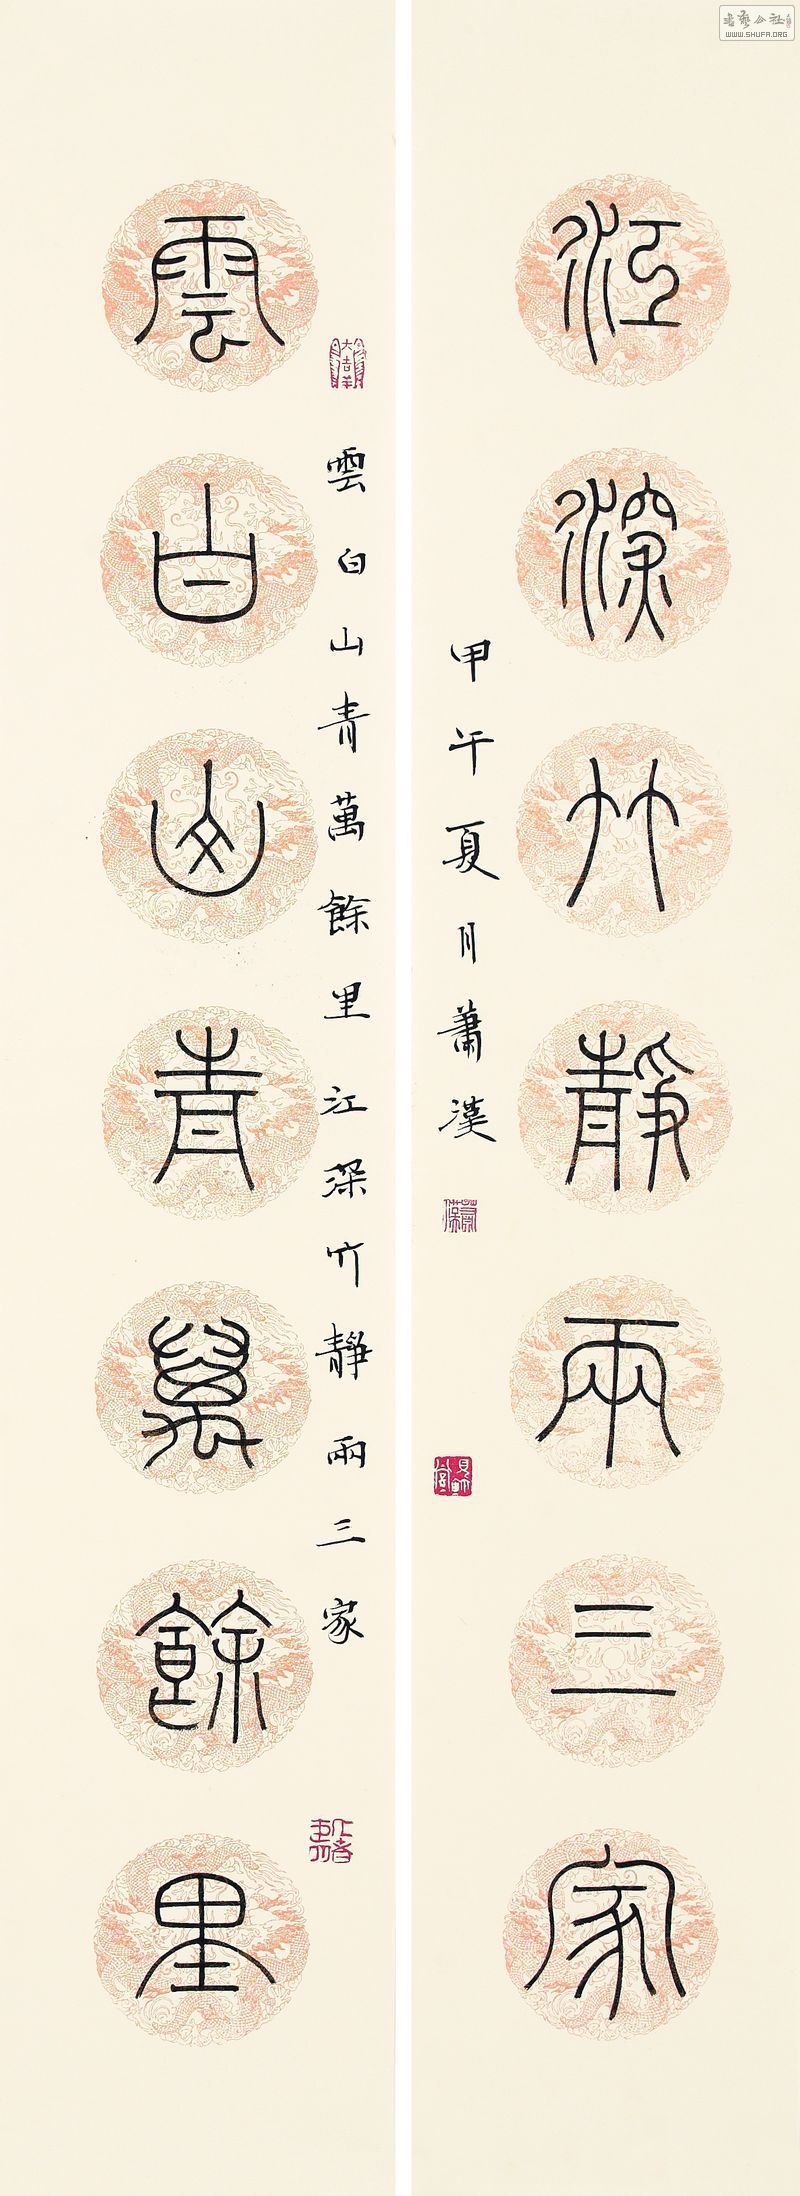 江深竹靜兩三家
甲午夏月蕭漢
雲白山青萬餘里江深竹靜兩三家
大吉羊
雲白山青萬餘里
WWW.SHUFA.ORG